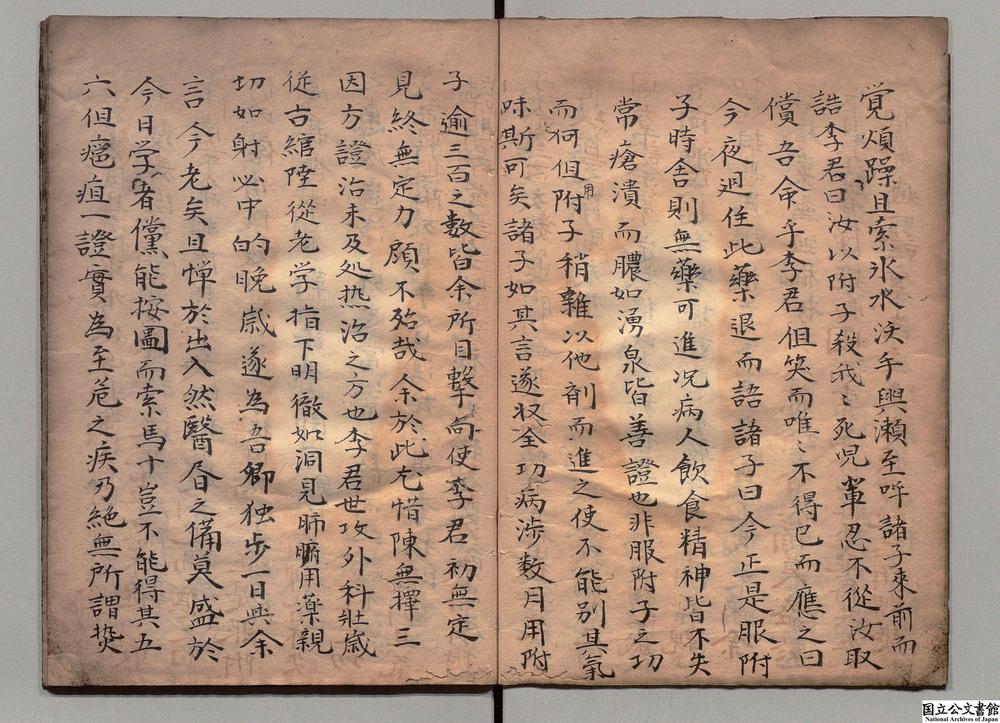 覚煩躁且索氷水沃手輿瀬至呼諸子来前而
誥李君曰汝以附子殺我〻死児輩忍不従汝取
償吾命乎李君但笑而唯〻不得已而應之曰
今夜廻住此藥退而語諸子曰今正是服附
子時舎則無藥可進况病人飲食精神皆不失
常瘡潰而膿如湧泉皆善證也非服附子之功
而何但用附子稍雜以他剤而進之使不能別其氣
味斯可矣諸子如其言遂収全功病渉数月用附
子逾三百之数皆余所目擊向使李君初無定
見終無定力顧不殆哉余於此尤惜陳無擇三
因方證治未及处热治之方也李君世攻外科壮歳
從古綰陸從老学指下明徹如洞見肺腑用藥親
切如射必中的晩歳遂為吾郷独歩一日與余
言今老矣且憚於出入然醫昏之備莫盛於
今日学者儻能按圖而索馬十豈不能得其五
六但癌疽一證實為至危之疾乃絶無所謂焫
国立公文書館
National Archives of Japan